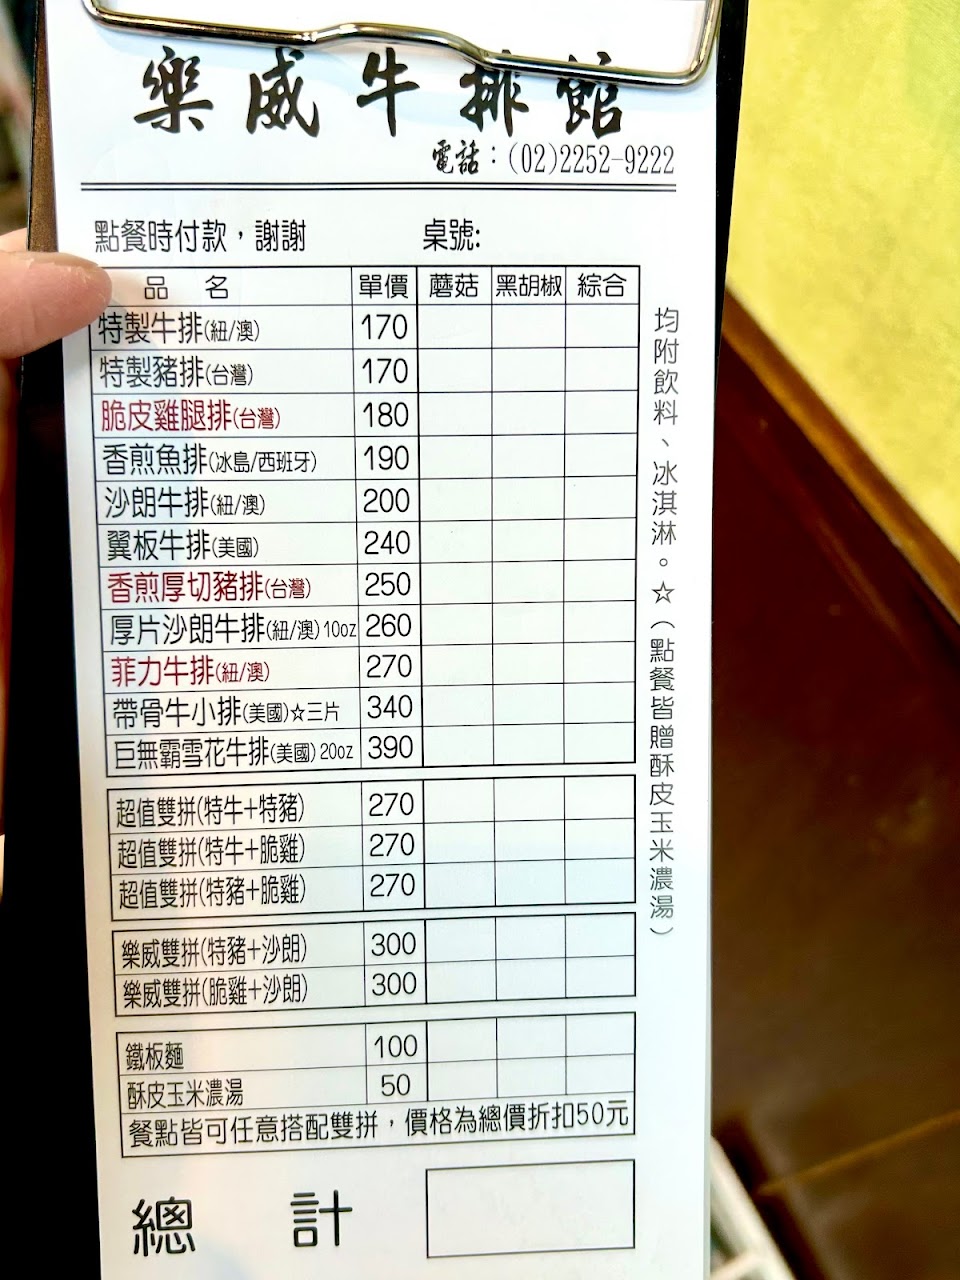 樂威牛排館
電話：(02)2252-9222
點餐時付款，謝謝 桌號:
品名 單價 蘑菇 黑胡椒 綜合
特製牛排(紐/澳) 170
特製豬排(台灣) 170
脆皮雞腿排(台灣) 180
香煎魚排(冰島/西班牙) 190
沙朗牛排(紐/澳) 200
翼板牛排(美國) 240
香煎厚切豬排(台灣) 250
厚片沙朗牛排(紐/澳)10oz 260
菲力牛排(紐/澳) 270
帶骨牛小排(美國)☆三片 340
巨無霸雪花牛排(美國)20oz 390
超值雙拼(特牛+特豬) 270
超值雙拼(特牛+脆雞) 270
超值雙拼(特豬+脆雞) 270
樂威雙拼(特豬+沙朗) 300
樂威雙拼(脆雞+沙朗) 300
鐵板麵 100
酥皮玉米濃湯 50
餐點皆可任意搭配雙拼，價格為總價折扣50元
總計
均附飲料、冰淇淋。☆(點餐皆贈酥皮玉米濃湯)